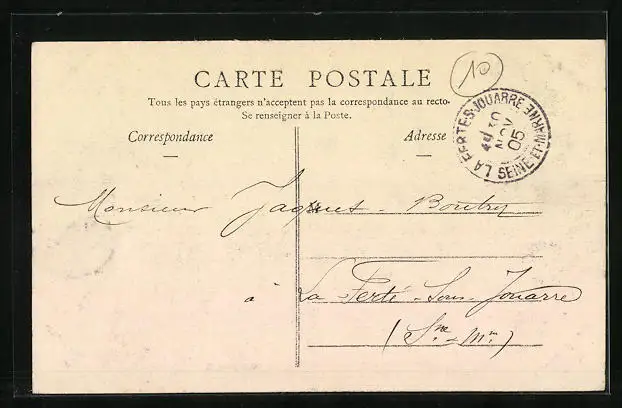 CARTE POSTALE
10
Tous les pays étrangers n'acceptent pas la correspondance au recto.
Se renseigner à la Poste.
Correspondance
Adresse
LA FERTE-S-JOUARRE
30
NOV
05
SEINE-ET-MARNE
Monsieur Jaques Boutry
à La Ferté-Sous-Jouarre
(Sne-Mne)